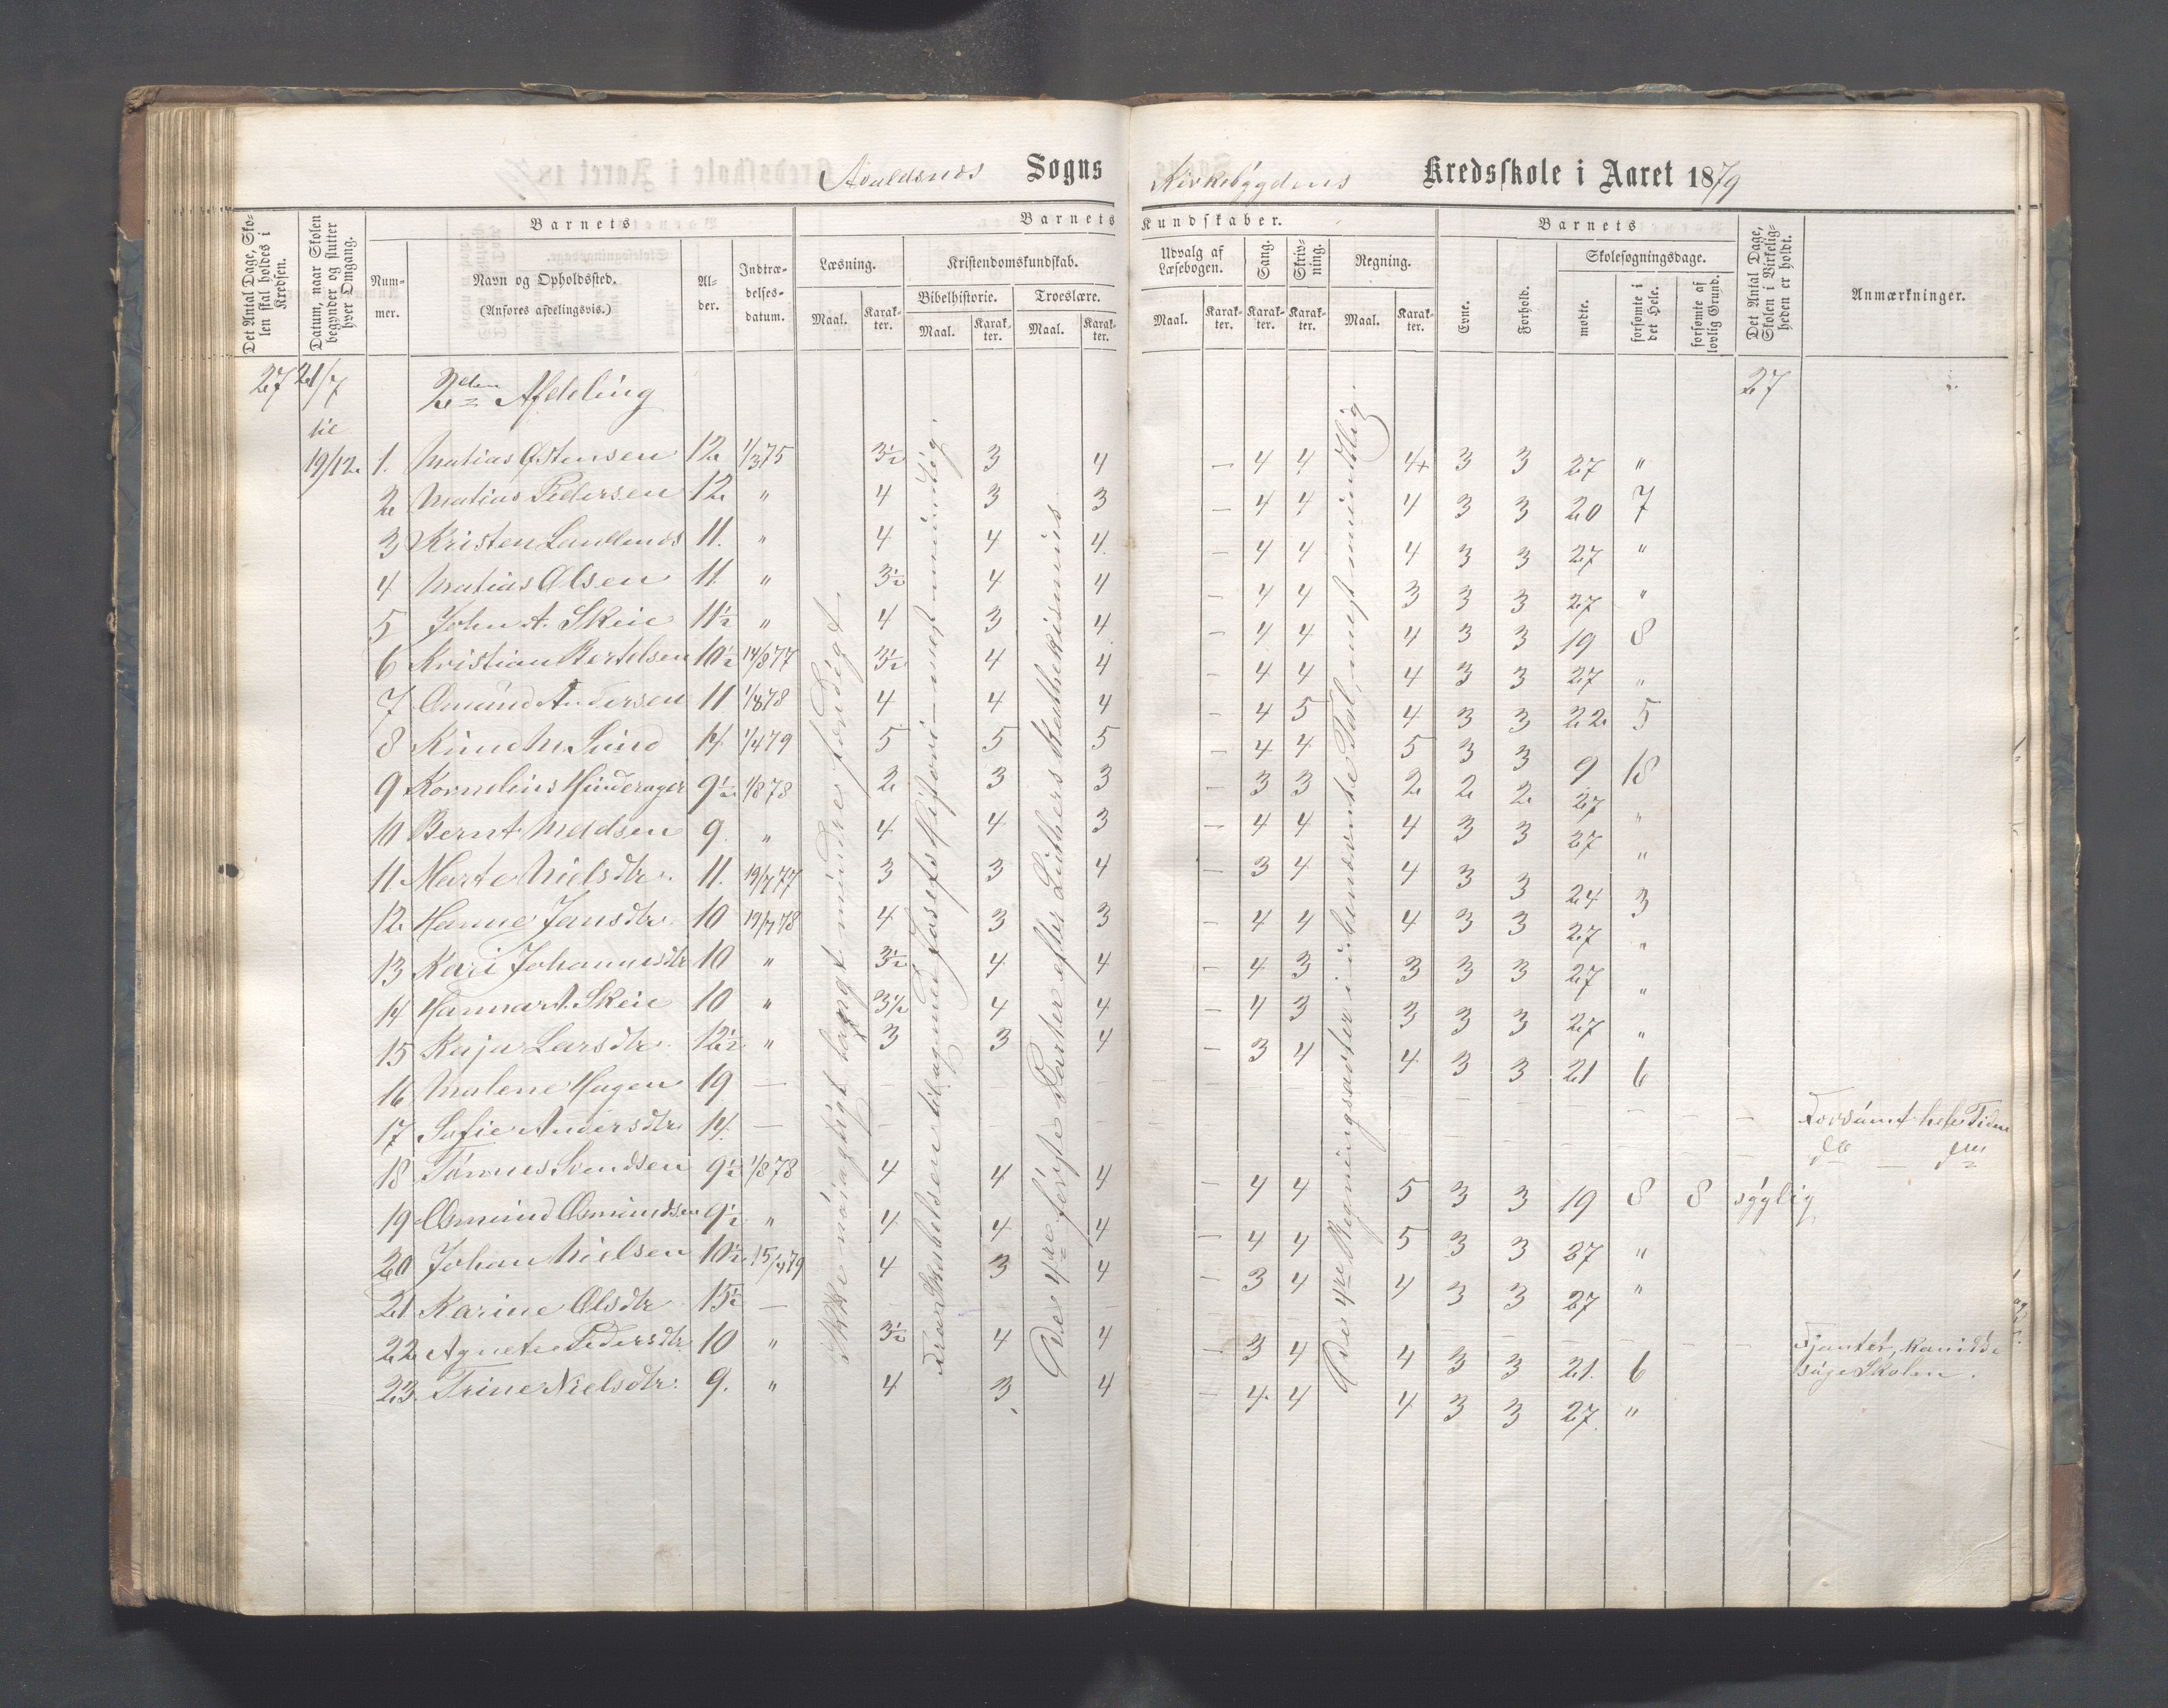 Avaldsnes Sogns Kirkebygdens Kredsskole i Aaret 1879
Det Antal Dage, Skolen skal holdes i Kredsen.
Datum, naar Skolen begynder og slutter hver Omgang.
Barnets
Nummer.
Navn og Opholdssted.
(Anføres afdelingsvis.)
Alder.
Indtrædelsesdatum.
Barnets Kundskaber.
Læsning.
Maal.
Karakter.
Kristendomskundskab.
Bibelhistorie.
Maal.
Karakter.
Troeslære.
Maal.
Karakter.
Udvalg af Læsebogen.
Maal.
Karakter.
Sang.
Karakter.
Skrivning.
Karakter.
Regning.
Maal.
Karakter.
Barnets
Evne.
Forhold.
Skolesøgningsdage.
mødte.
forsømte i det Hele.
forsømte af lovlig Grund.
Det Antal Dage, Skolen i Virkeligheden er holdt.
Anmærkninger.
27 21/7 2den Afdeling 27
til
19/12 1. Matias Østensen 12 1/3 75 3½ 3 4 – 4 4 4+ 3 3 27 "
2 Matias Pedersen 12 " 4 3 3 – 4 4 4 3 3 20 7
3 Kristen 11. " 4 4 4. – 4 4 4 3 3 27 "
4 Matias Olsen 11. " 3½ 4 4 – 4 4 3 3 3 27 "
5 John A. Skeie 11½ " 4 3 4 – 4 4 4 3 3 19 8
6 Kristian Bertelsen 10½ 14/8 77 3½ 4 4 – 4 4 4 3 3 27 "
7 Osmund Andersen 11 1/8 78 4 4 4 – 4 5 4 3 3 22 5
8 Knud M. Lund 14 1/4 79 5 5 5 – 4 4 5 3 3 9 18
9 Kornelius Hinderager 9½ 1/8 78 2 3 3 – 3 3 2 2 2 27 "
10 Bernt Madsen 9. " 4 4 3 – 4 4 4 3 3 27 "
11 Marte Nielsdtr. 11. 19/7 77 3 3 4 – 3 4 4 3 3 24 3
12 Hanne Jansdtr. 10 19/7 78 4 3 3 – 4 4 4 3 3 27 "
13 Kari Johannesdtr 10 " 3½ 4 4 – 4 3 3 3 3 27 "
14 Hanna A. Skeie 10 " 3½ 4 4 – 4 3 3 3 3 27 "
15 Kaja Larsdtr. 12½ " 3 3 4 – 3 4 4 3 3 21 6
16 Malene Hagen 19 – Forsømt hele Tiden
17 Sofie Andersdtr 14. – do – do
18 Tønnes Svendsen 9½ 1/8 78 4 4 4 – 4 4 5 3 3 19 8 8 sygelig
19 Osmund Osmundsen 9½ " 4 4 4 – 4 4 5 3 3 27 "
20 Johan Nielsen 10½ 15/4 79 4 3 4 – 3 4 4 3 3 27 "
21 Karine Olsdtr 15½ – Tjentet, kan ikke
søge Skolen.
22 Agnete Pedersdtr 10 " 3½ 4 4 – 3 4 4 3 3 21 6
23. Trine Nielsdtr. 9. " 4 3 4 – 4 4 4 3 3 27 "
Ikke nøiagtigt langt mindre færdigt.
Fra Skabelsen til og med Josefs Historie – mest mundtlig.
De 4re første Parter efter Luthers Kathekismus
De 4re Regningsarter i ubenævnte Tal, mest mundtlig.